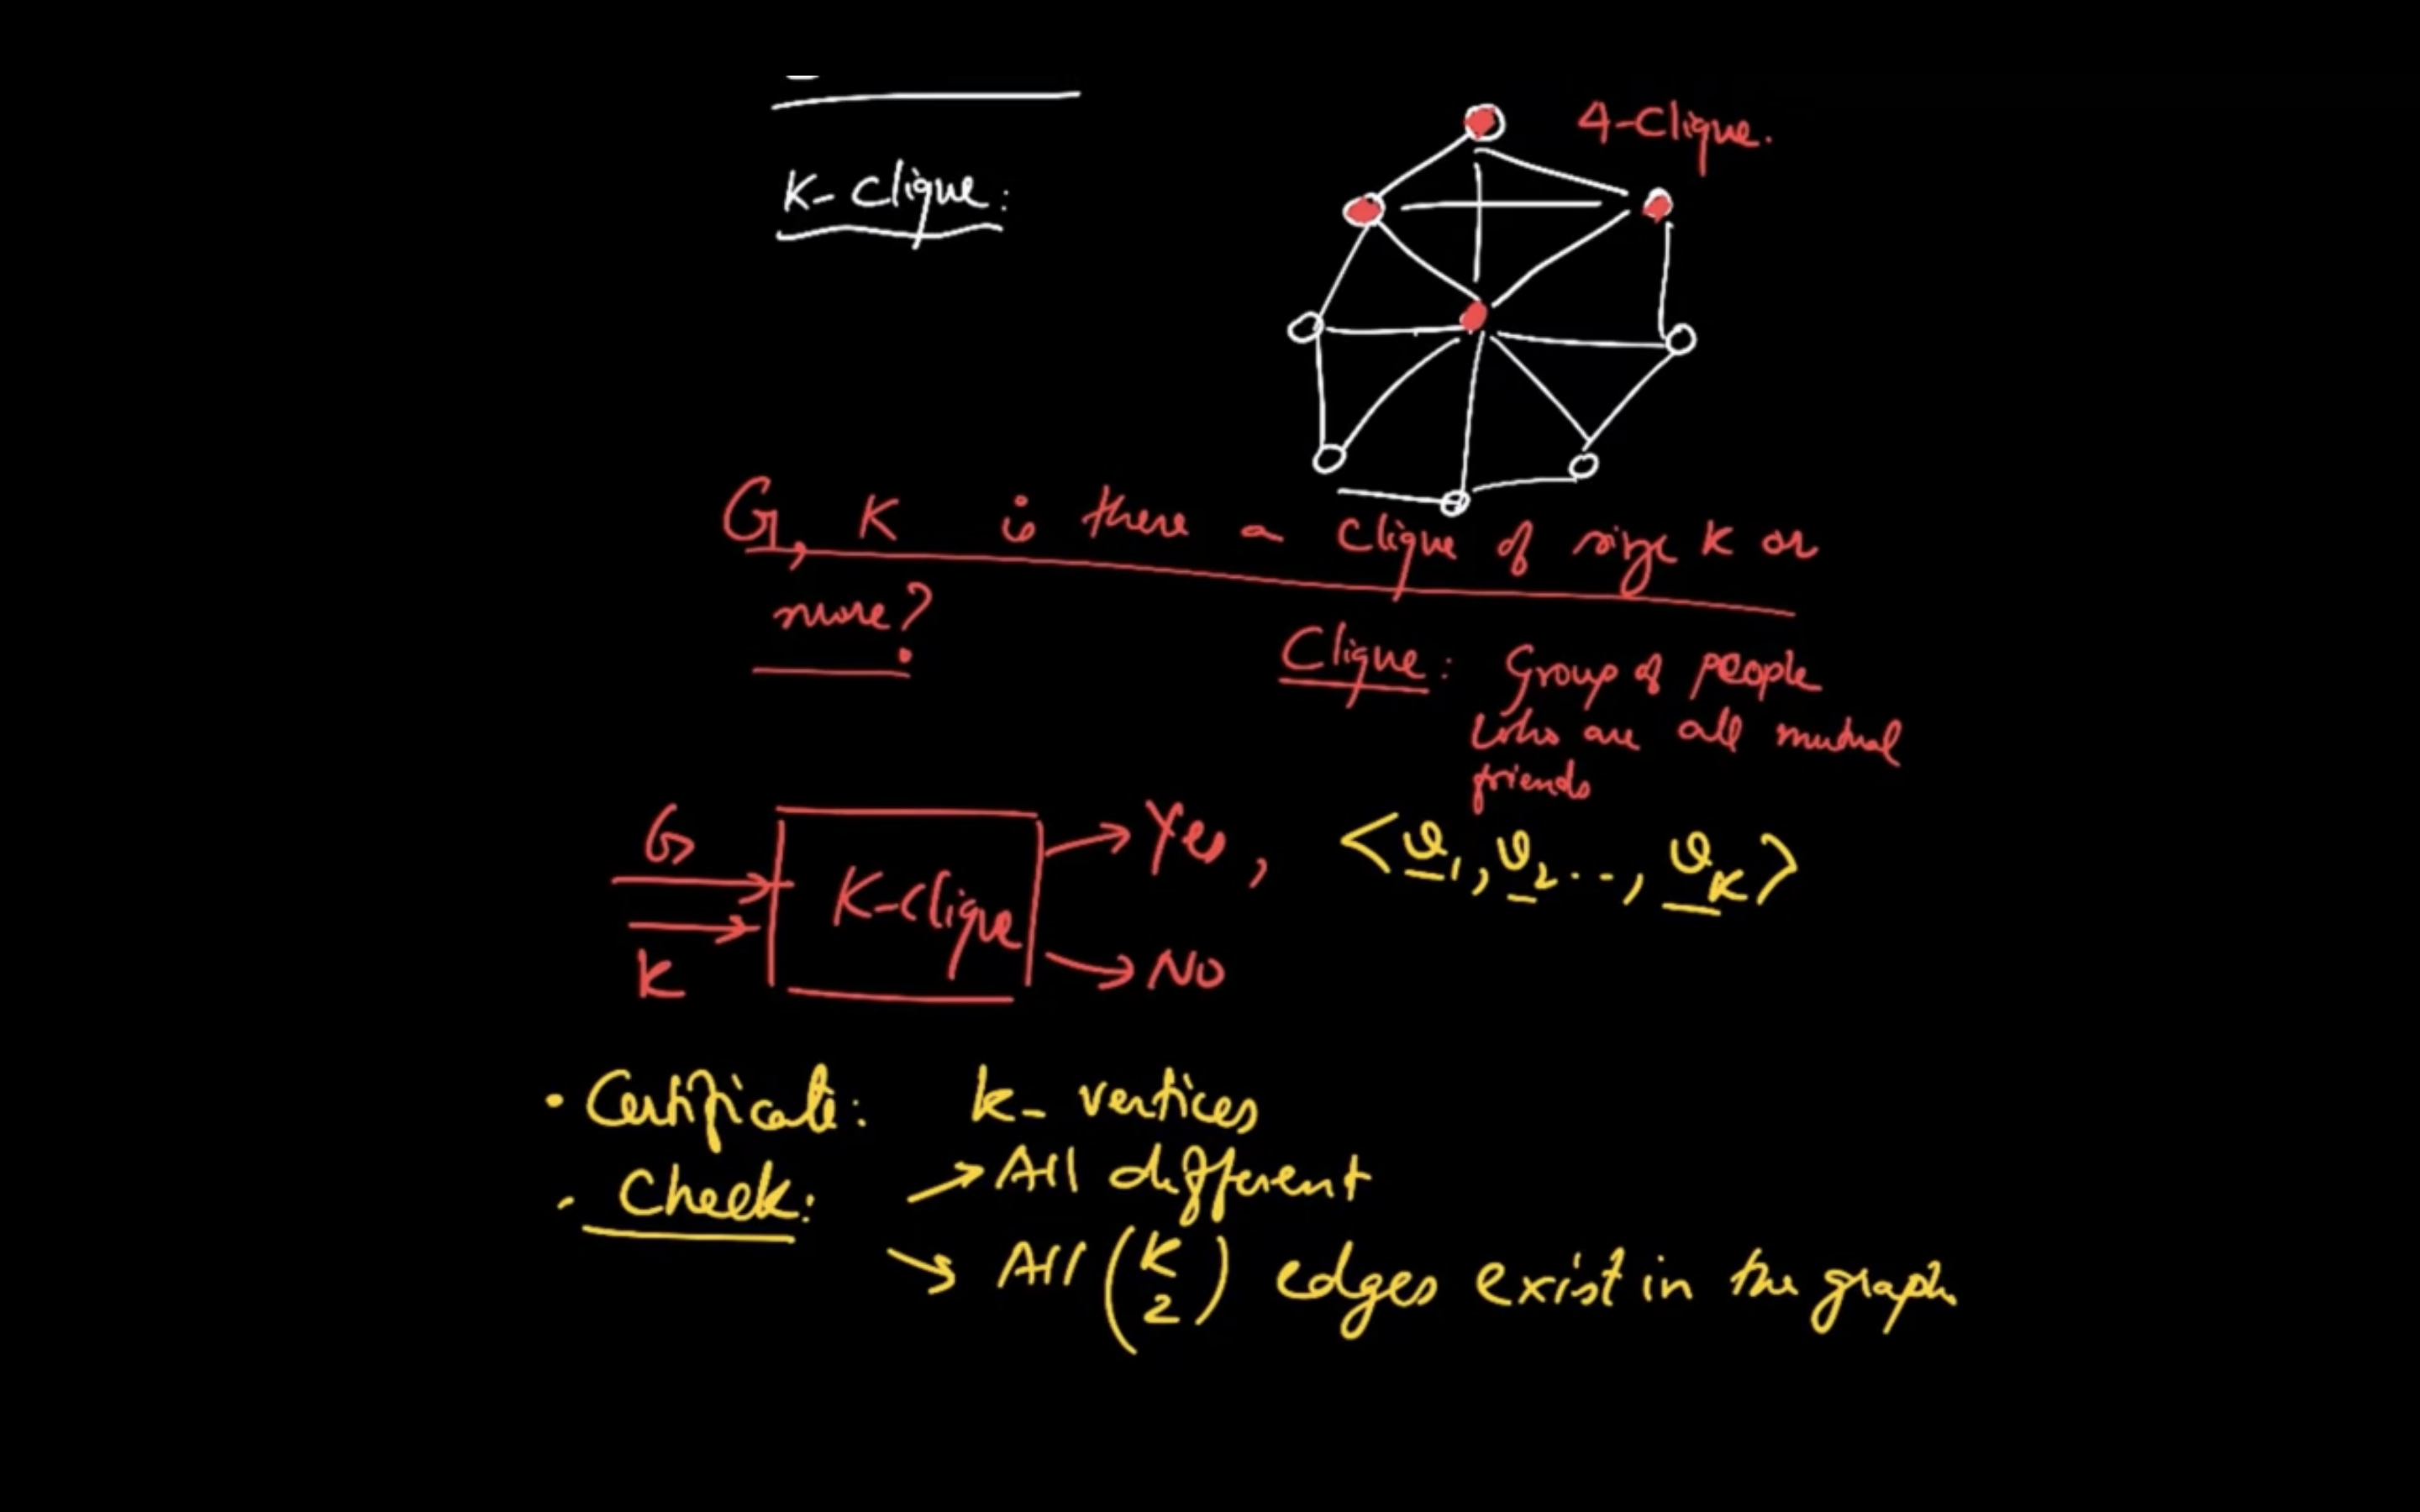 K-Clique:
4-Clique.
G, K is there a Clique of size K or
more?
Clique: Group of people
who are all mutual
friends
G
K
K-Clique
Yes, <v1, v2..., vK>
NO
• Certificate: k- vertices
• Check: → All different
→ All (K 2) edges exist in the graph